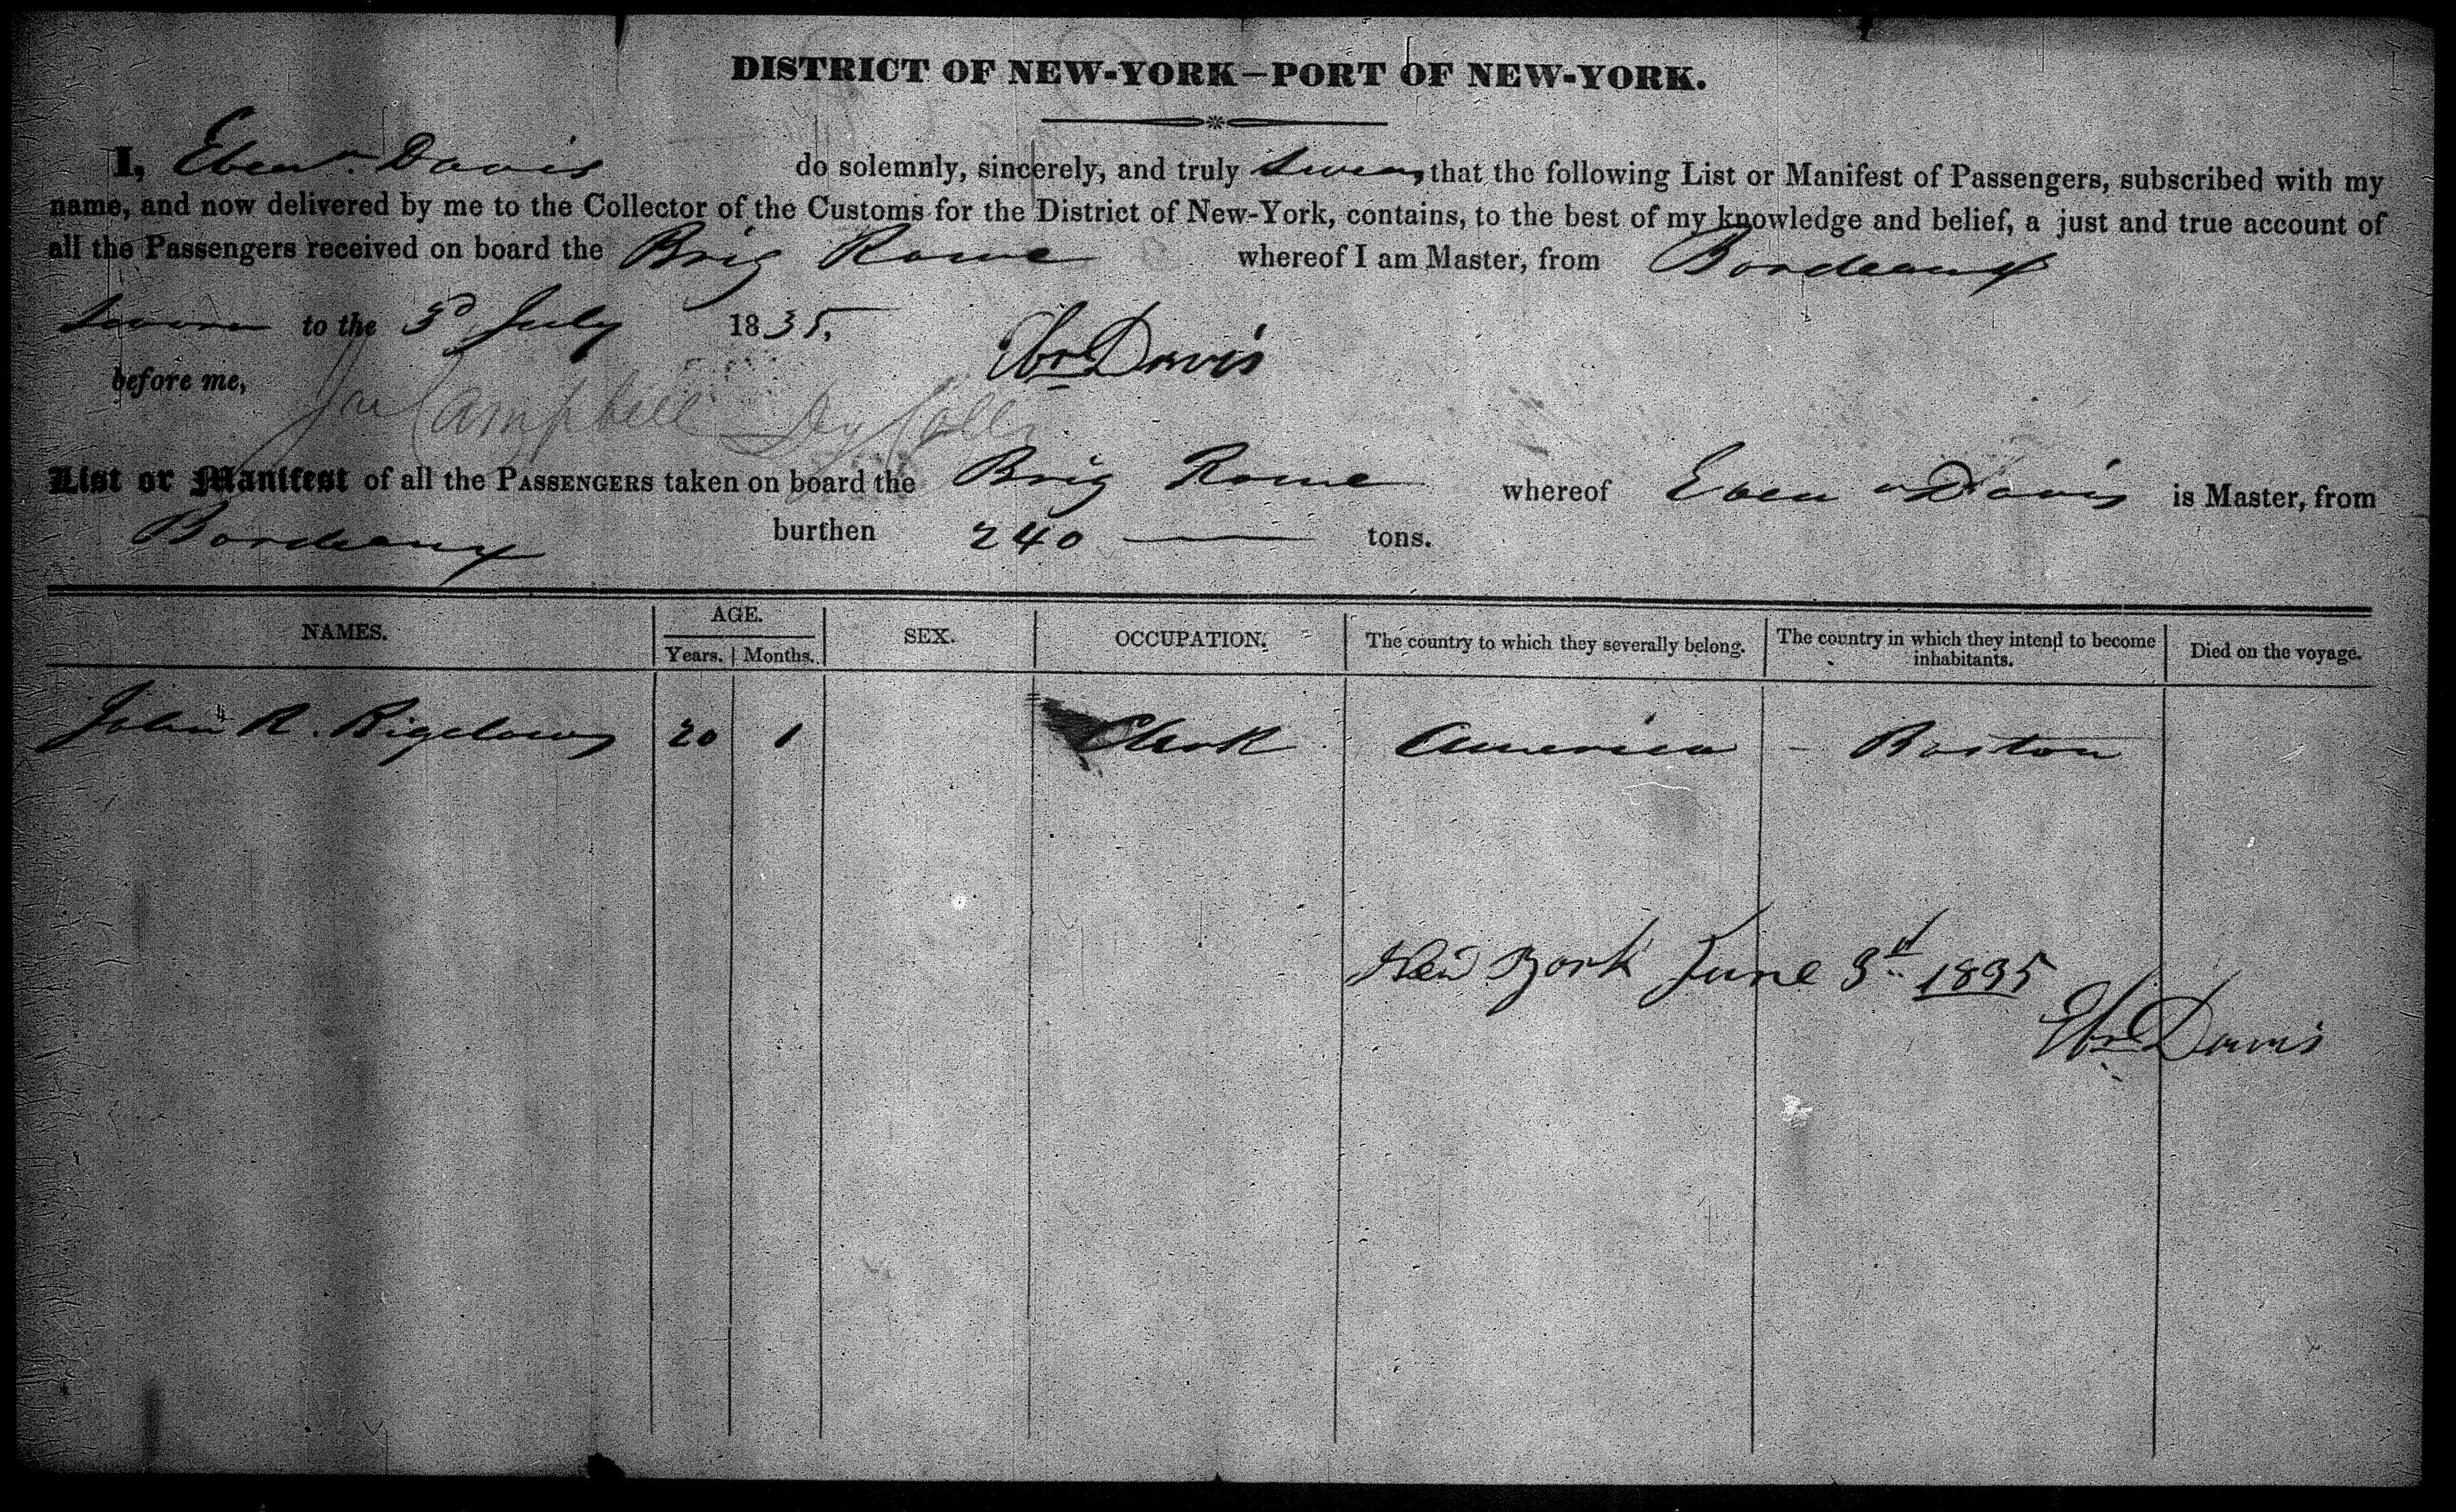 DISTRICT OF NEW-YORK—PORT OF NEW-YORK.
I, Ebenr. Davis do solemnly, sincerely, and truly swear, that the following List or Manifest of Passengers, subscribed with my
name, and now delivered by me to the Collector of the Customs for the District of New-York, contains, to the best of my knowledge and belief, a just and true account of
all the Passengers received on board the Brig Rome whereof I am Master, from Bordeaux
Sworn to the 3d July 1835,
Ebr Davis
before me,
Campbell Dy Coll
List or Manifest of all the PASSENGERS taken on board the Brig Rome whereof Eben r Davis is Master, from
Bordeaux burthen 240 — tons.
NAMES. AGE. SEX. OCCUPATION. The country to which they severally belong. The country in which they intend to become inhabitants. Died on the voyage.
Years. Months.
John R. Bigelow 20 1 Clerk America - Boston
New York June 3d 1835
Ebr Davis